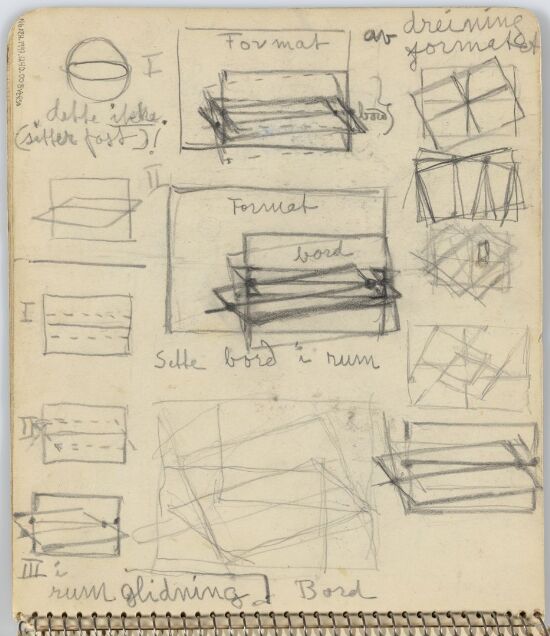 av dreining
formatet
I
Format
dette ikke.
(sitter fast)!
bord
II
Format
bord
I
Sette bord i rum
II
III i
rumglidning
Bord